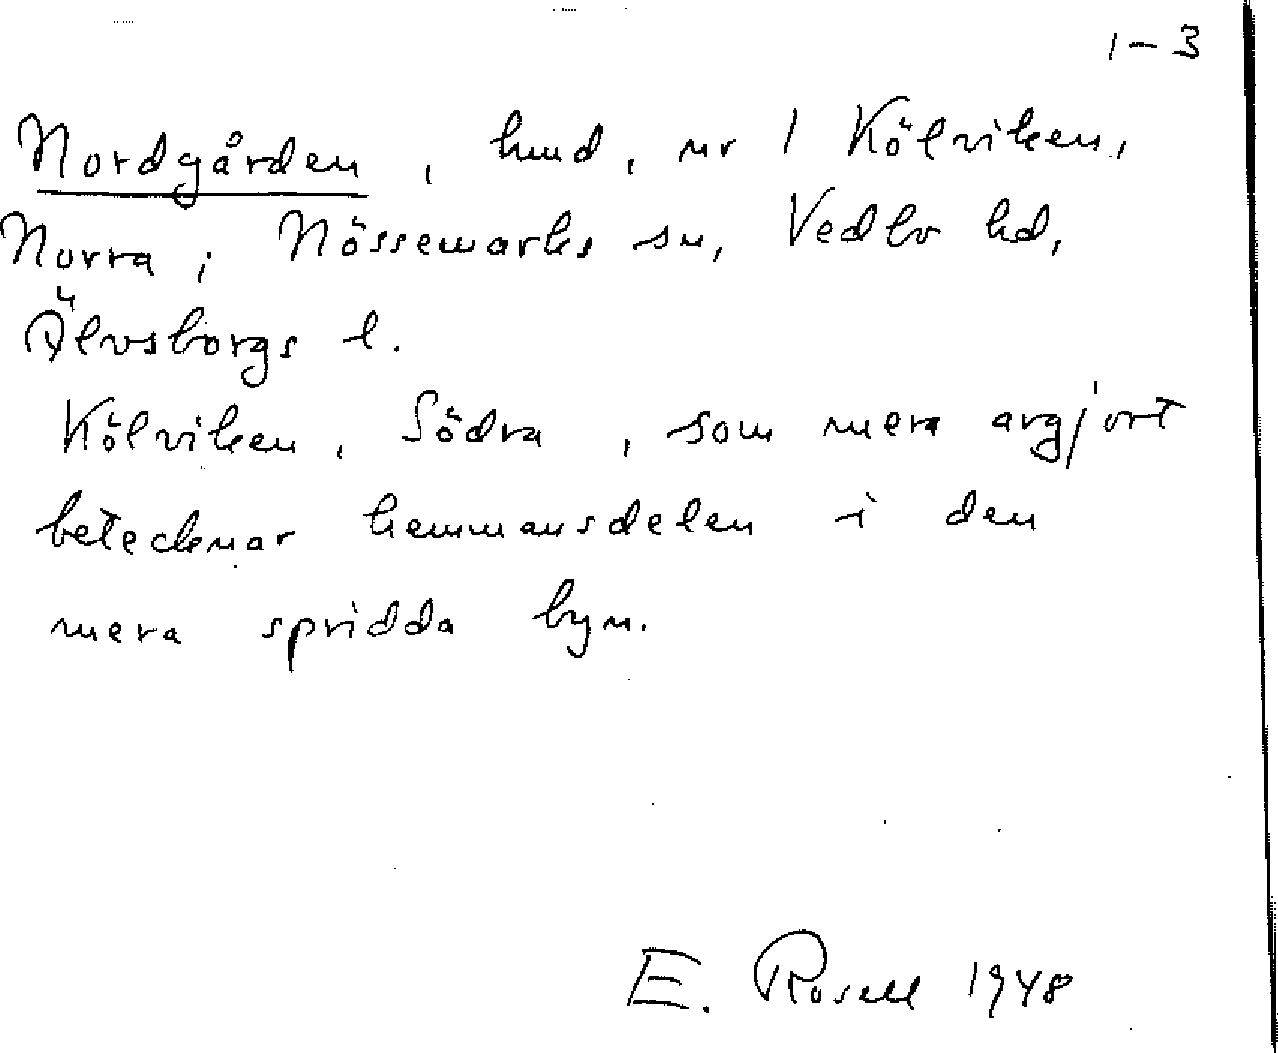 1-3
Nordgården, hmd, nr 1 Kölviken,
Norra, Nössemarks sn, Vedbo hd,
Älvsborgs l.
Kölviken, Södra, som mera avgjort
betecknar hemmansdelen i den
mera spridda byn.
E. Rosell 1948